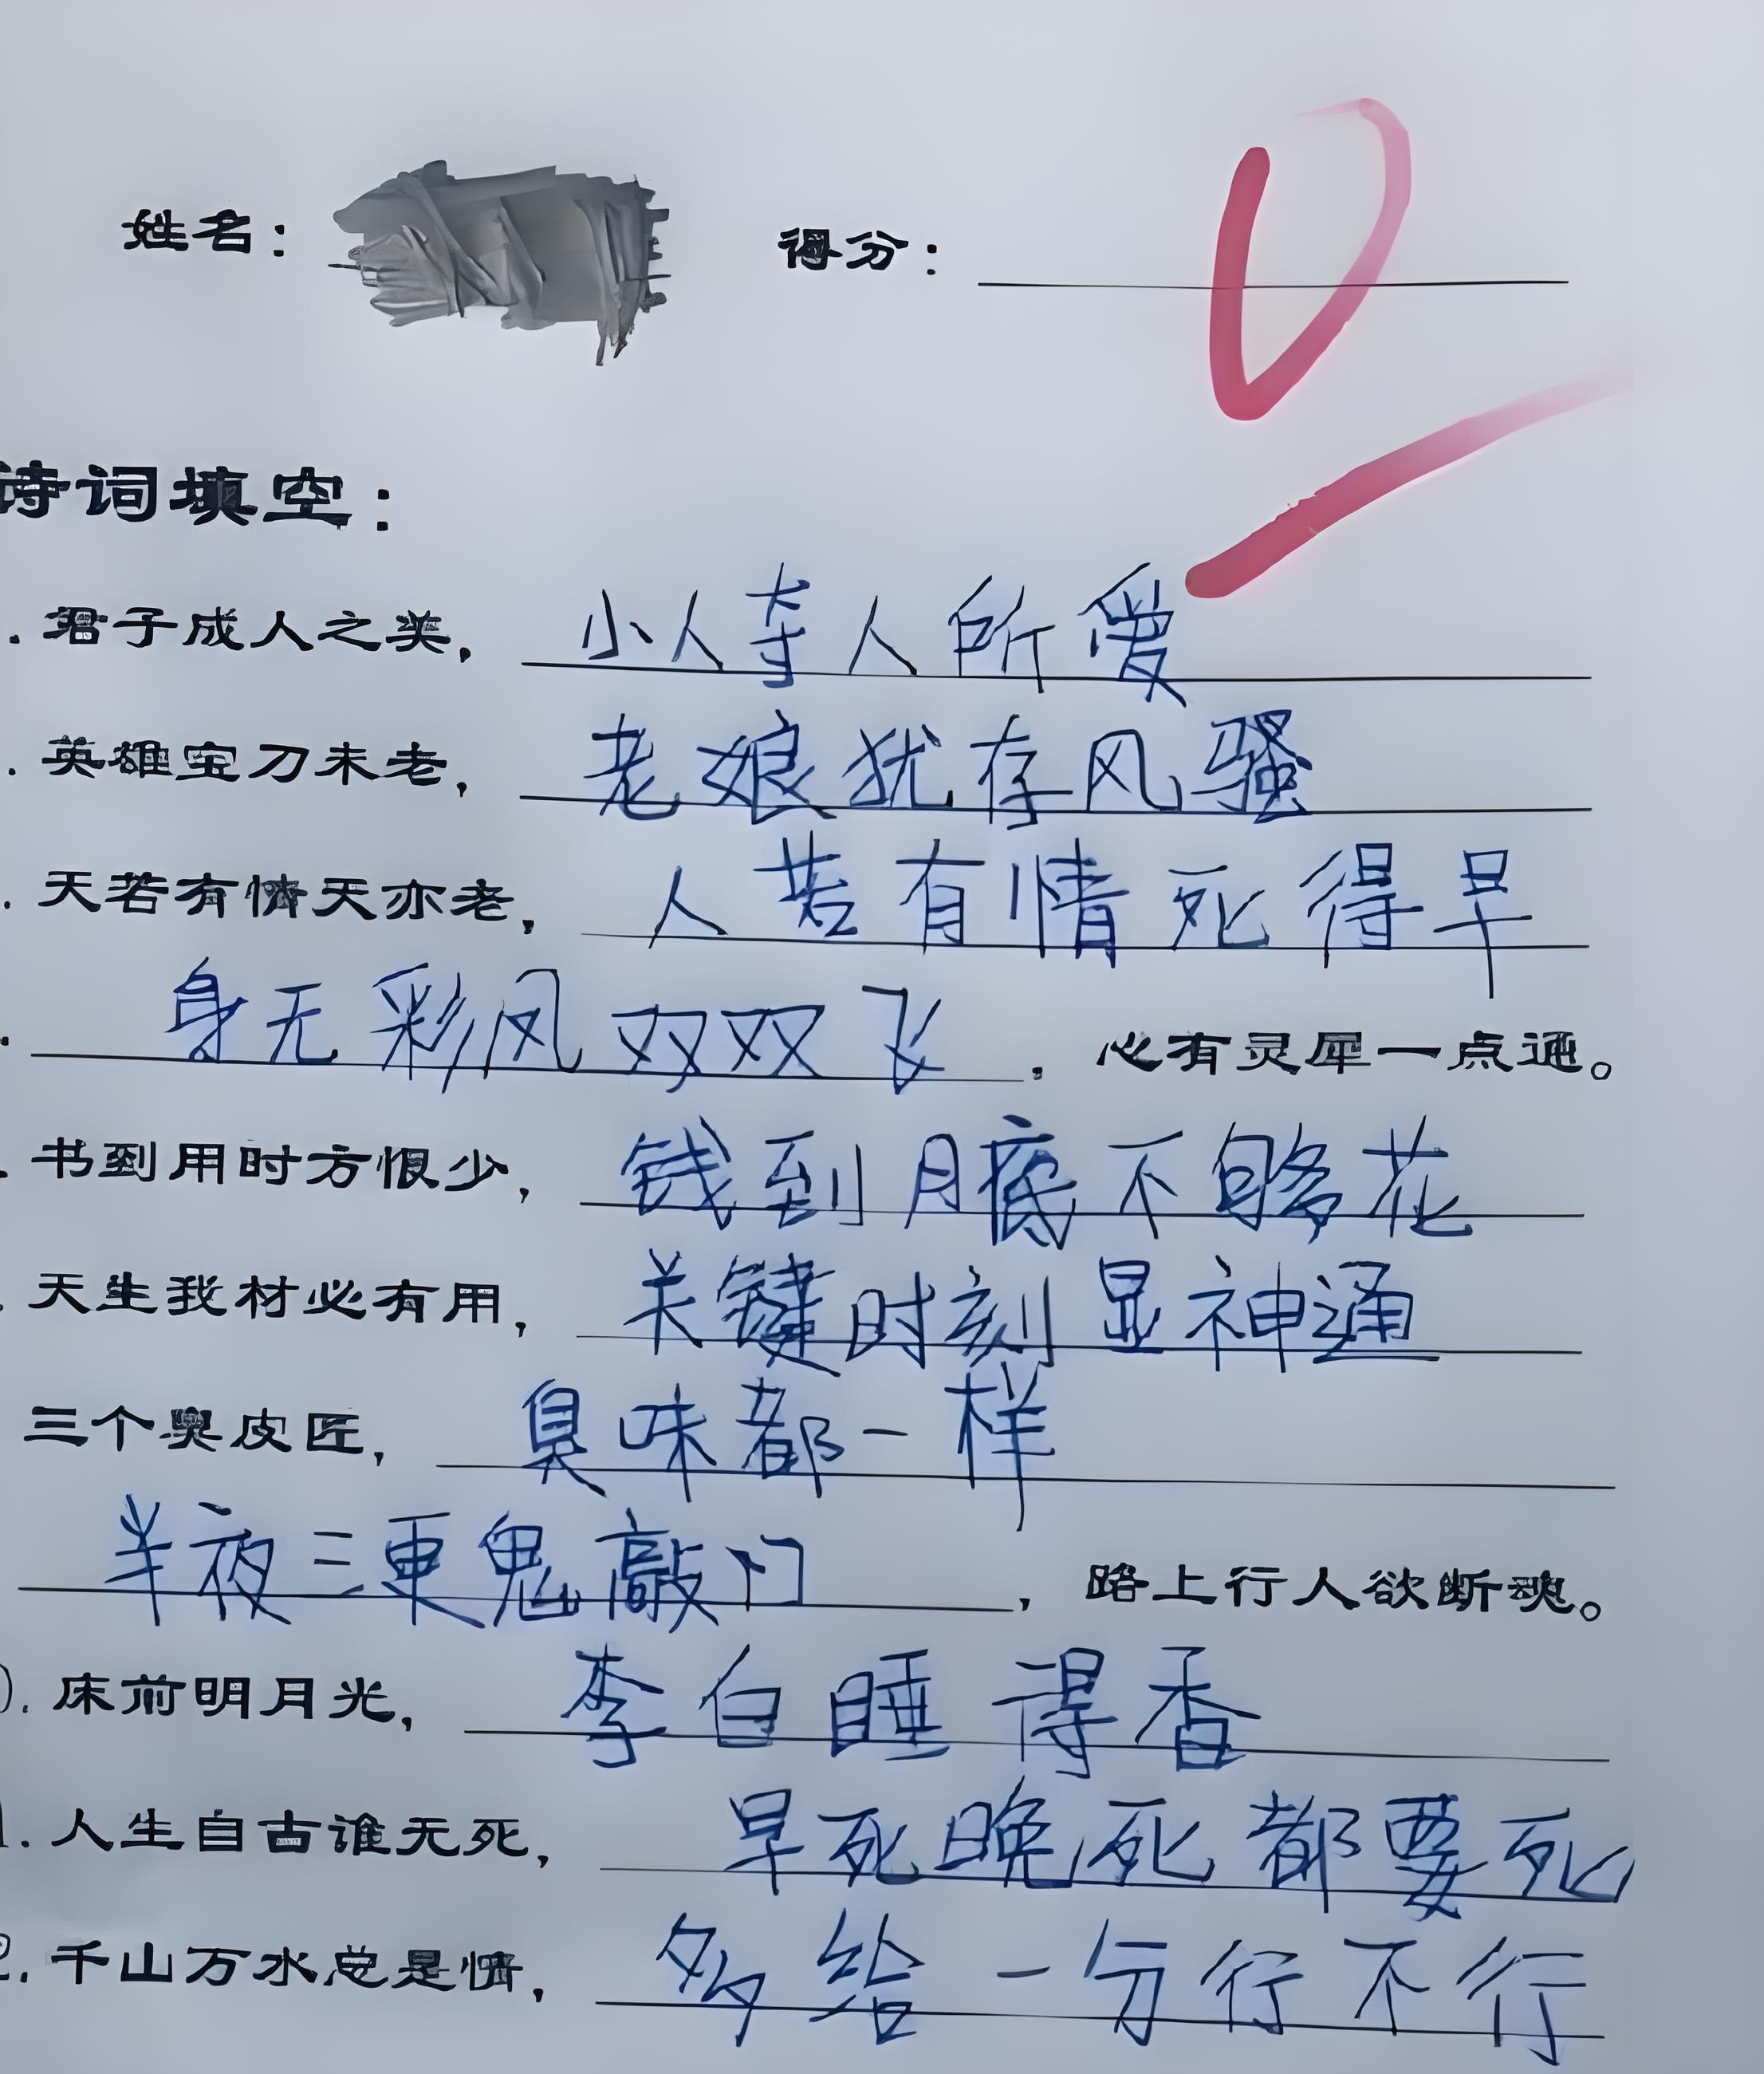 姓名： 得分： 0
诗词填空：
. 君子成人之美， 小人夺人所爱
. 英雄宝刀未老， 老娘犹存风骚
. 天若有情天亦老， 人若有情死得早
. 身无彩凤双双飞 ， 心有灵犀一点通。
. 书到用时方恨少， 钱到月底不够花
. 天生我材必有用， 关键时刻显神通
三个臭皮匠， 臭味都一样
半夜三更鬼敲门 ， 路上行人欲断魂。
0. 床前明月光， 李白睡得香
1. 人生自古谁无死， 早死晚死都要死
2. 千山万水总是情， 多给一分行不行